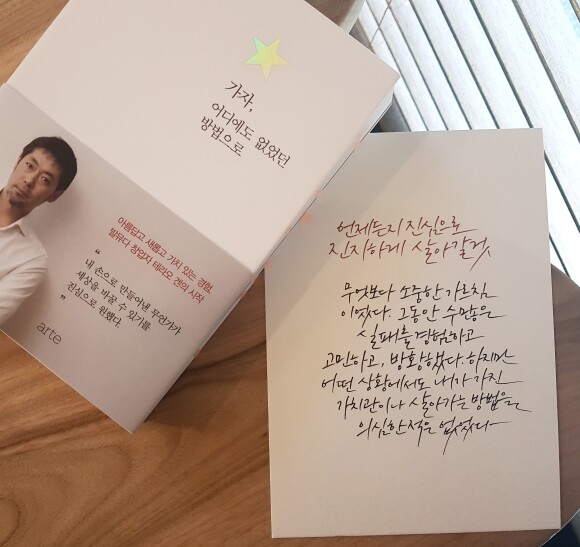 가자,
어디에도 없었던
방법으로
아름답고 새롭고 가치 있는 경험,
발뮤다 창업자 테라오 겐의 시작
“
내 손으로 만들어낸 무언가가
세상을 바꿀 수 있기를
진심으로 원했다.
”
arte
언제든지 진심으로
진지하게 살아갈것
무엇보다 소중한 가르침
이었다. 그동안 수많은
실패를 경험하고
고민하고, 방황했다. 하지만
어떤 상황에서도 내가 가진
가치관이나 살아가는 방법을
의심한 적은 없었다